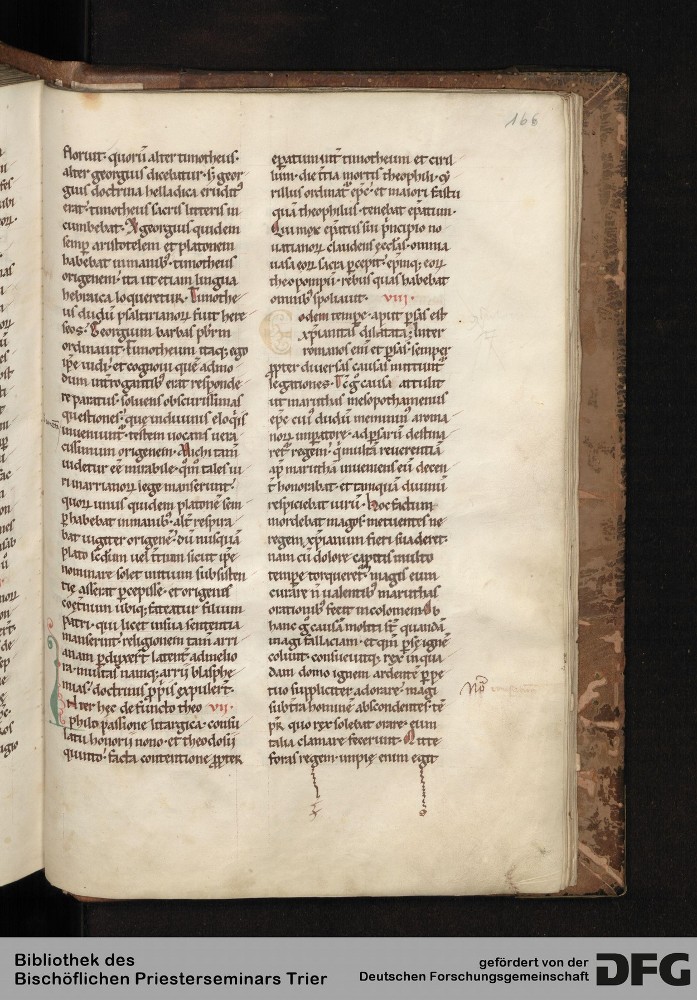 166
floruit· quorū alter timotheus·
alter georgius dicebatur· sꝫ geor
gius doctrina helladica eruditꝰ
erat· timotheus sacris litteris in
cumbebat· Et georgius quidem
semꝑ aristotelem et platonem
habebat inmanibꝰ· timotheus
origenem· ita ut etiam lingua
hebraica loqueretur· Timothe
us dudū psaltirianorū fuit here
seos· Georgium barbas pb̄rm
ordinauit· Timotheum itaqꝫ ego
ip̄e uidi· et cognoui quē admo
dum int̄rogantibꝰ erat responde
re paratus· soluens obscurissimas
questiones· que indiuinis eloqꝰis
inueniunt᷑· testem uocans uera
cissimum origenem· Michi tam̄
uidetur eē mirabile· qm̄ tales ui
ri inarrianorū lege manserunt·
quorū unus quidem platonē sem
ꝑ habebat inmanibꝰ· alt̄ respira
bat iugiter origenē· Dū nusquā
plato sc̄dum uel t̄cium sicut ip̄e
nominare solet initium subsisten
tię asserat ꝑcepisse· et origenis
coęt̄num ubiqꝫ fateatur filium
patri· qui licet insua sententia
manserint· religionem tam̄ arri
anam ꝑduxer̄t latent̄ admelio
ra· multas namqꝫ arrii blasphe
mias· doctrinis ꝓpriis expuler̄t·
Igitur hęc defuncto theo vii·
philo passione litargica· consu
latu honorii nono· et theodosii
quinto· facta contentione ꝓpter
ep̄atum int̄ timotheum et ciril
lum· die t̄cia mortis theophili· cy
rillus ordinat᷑ ep̄c· et maiori fastu
quā theophilus· tenebat ep̄atum·
Qui mox ep̄atus sui principio no
uatianorū claudens eccl̄as· omnia
uasa eorū sacra ꝑcepit· ep̄mqꝫ eorū
theopompū· rebus quas habebat
omnibꝰ spoliauit· viii·
Eodem tempr̄e· aput ꝑsas est
xp̄ianitas dilatata· Inter
romanos eni et ꝑsas· semper
ꝓpter diuersas causas mittunt᷑
legationes· Tc̄ g̊ causa attulit
ut maruthas mesopothamenus
ep̄c cuiꝰ dudū meminimꝰ aroma
norū imꝑatore· ad ꝑsarū destina
ret᷑ regem· qui multā reuerentiā
ap̄ marutha inueniens· eū decen
t̄ honorabat· et tanquā diuinū
respiciebat uirū· hoc factum
mordebat magos· metuentes ne
regem xp̄ianum fieri suaderet·
nam cū dolore capitis multo
tempr̄e torqueret᷑· magis eum
curare n̄ ualentibꝰ· maruthas
orationibꝰ fecit incolomem· Ob
hanc g̊ causā moliti st̄ quandā
magi fallaciam· et qm̄ ꝑse ignē
colunt· consueuitqꝫ rex inqua
dam domo ignem ardentē ꝑpe
tuo suppliciter adorare· magi
subt̄ra hominē abscondentes· tē
pr̄e quo rex solebat orare· eum
talia clamare fecerunt· Mitte
foras regem· impie enim egit
Nō
Bibliothek des
Bischöflichen Priesterseminars Trier
gefördert von der
Deutschen Forschungsgemeinschaft
DFG